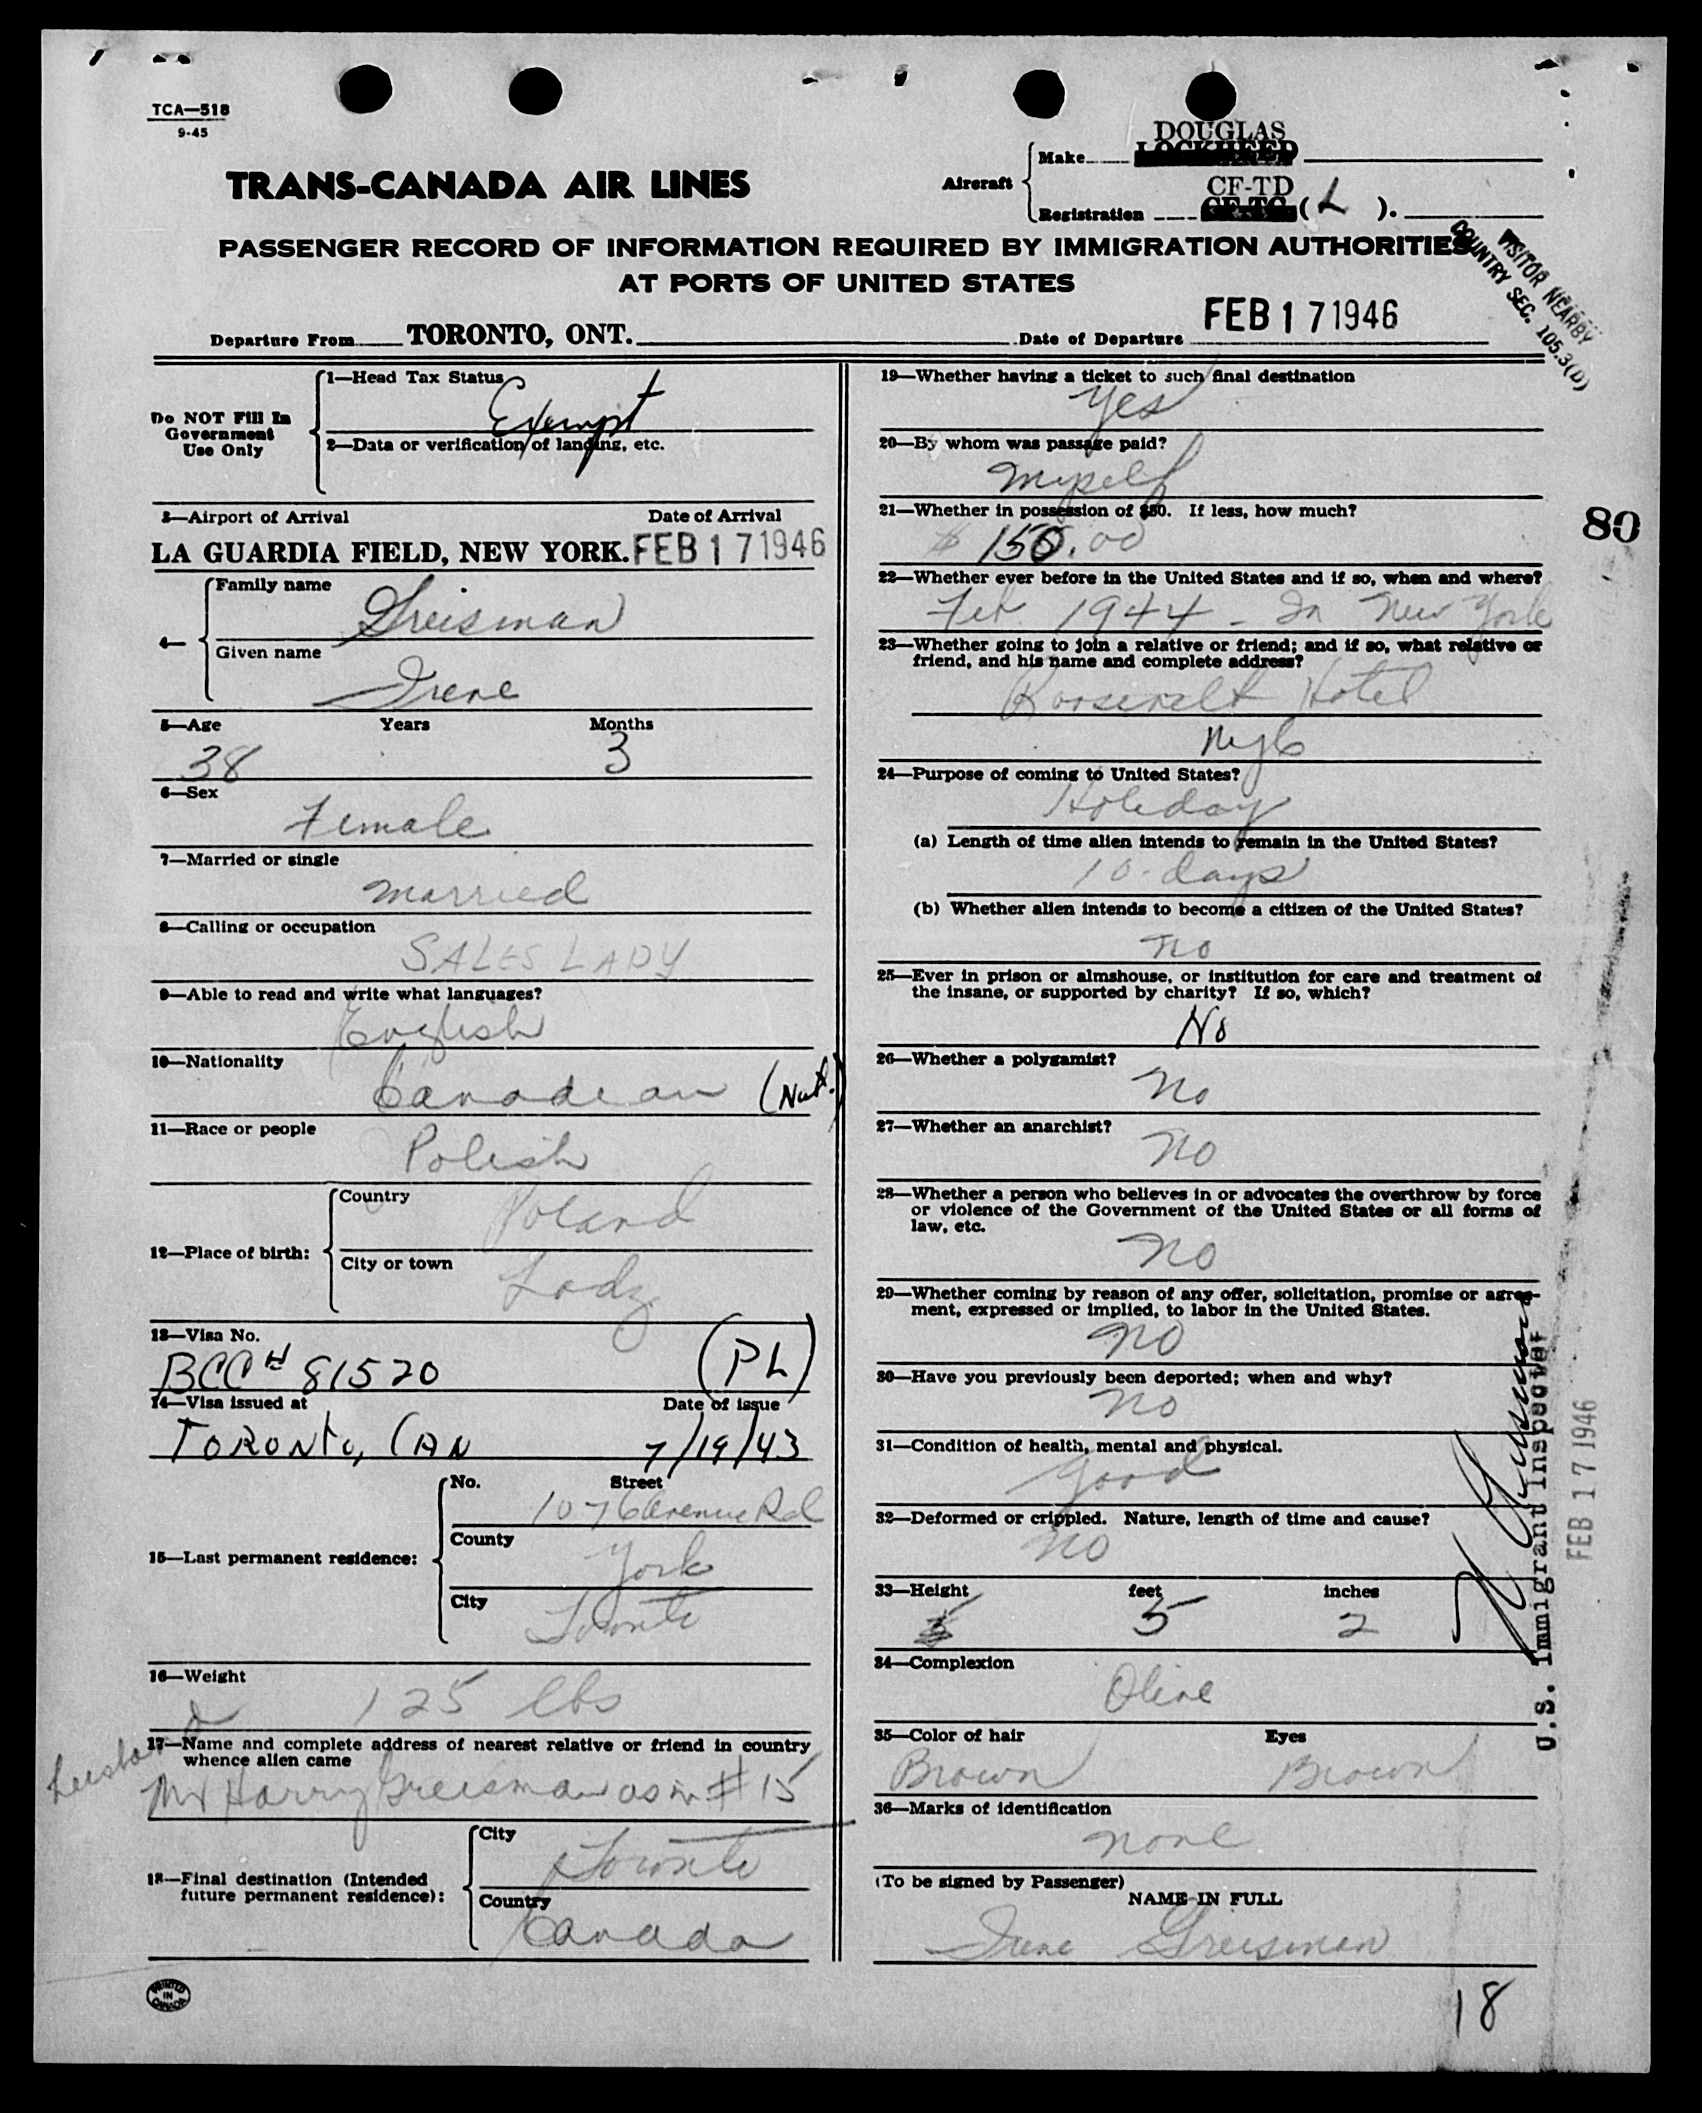 TCA—518
9-45
TRANS-CANADA AIR LINES
Aircraft
Make
DOUGLAS
LOCKHEED
Registration
CF-TD
CF-TC (L).
PASSENGER RECORD OF INFORMATION REQUIRED BY IMMIGRATION AUTHORITIES
AT PORTS OF UNITED STATES
VISITOR NEARBY
COUNTRY SEC. 105.3(D)
Departure From TORONTO, ONT. Date of Departure FEB 17 1946
Do NOT Fill In
Government
Use Only
1—Head Tax Status
Exempt
2—Data or verification of landing, etc.
3—Airport of Arrival Date of Arrival
LA GUARDIA FIELD, NEW YORK. FEB 17 1946
4—
Family name
Greisman
Given name
Irene
5—Age Years Months
38 3
6—Sex
Female
7—Married or single
married
8—Calling or occupation
SALES LADY
9—Able to read and write what languages?
English
10—Nationality
Canadian (Nat.)
11—Race or people
Polish
12—Place of birth:
Country
Poland
City or town
Lodz
13—Visa No.
BCC# 81520 (PL)
14—Visa issued at Date of issue
TORONTO, CAN 7/19/43
15—Last permanent residence:
No. Street
107 Avenue Rd
County
York
City
Toronto
16—Weight
125 lbs
17—Name and complete address of nearest relative or friend in country
whence alien came
Husband
Mr Harry Greisman as in #15
18—Final destination (Intended
future permanent residence):
City
Toronto
Country
Canada
PRINTED
IN
CANADA
19—Whether having a ticket to such final destination
Yes
20—By whom was passage paid?
myself
21—Whether in possession of $50. If less, how much?
$ 150.00
80
22—Whether ever before in the United States and if so, when and where?
Feb 1944 - In New York
23—Whether going to join a relative or friend; and if so, what relative or
friend, and his name and complete address?
Roosevelt Hotel
NYC
24—Purpose of coming to United States?
Holiday
(a) Length of time alien intends to remain in the United States?
10-days
(b) Whether alien intends to become a citizen of the United States?
no
25—Ever in prison or almshouse, or institution for care and treatment of
the insane, or supported by charity? If so, which?
No
26—Whether a polygamist?
No
27—Whether an anarchist?
no
28—Whether a person who believes in or advocates the overthrow by force
or violence of the Government of the United States or all forms of
law, etc.
no
29—Whether coming by reason of any offer, solicitation, promise or agree-
ment, expressed or implied, to labor in the United States.
no
30—Have you previously been deported; when and why?
no
31—Condition of health, mental and physical.
good
32—Deformed or crippled. Nature, length of time and cause?
no
33—Height feet inches
5 2
34—Complexion
Olive
35—Color of hair Eyes
Brown Brown
36—Marks of identification
none
(To be signed by Passenger)
NAME IN FULL
Irene Greisman
U.S. Immigrant Inspector
FEB 17 1946
18